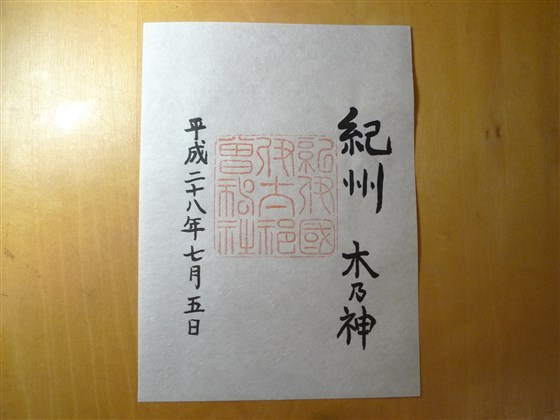 紀州 木乃神
紀伊國
伊太祁
曽神社
平成二十八年七月五日